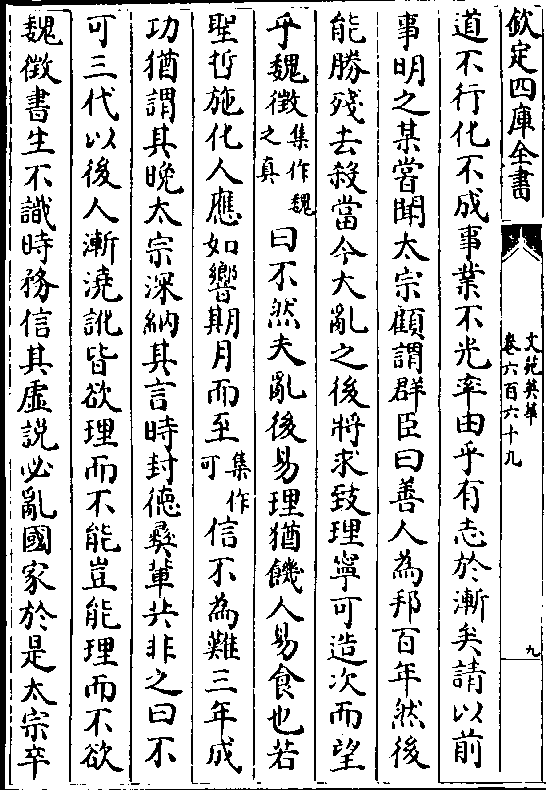 欽定四庫全書
文苑英華
卷六百六十九
九
道不行化不成事業不光率由乎有志於漸矣請以前
事明之某嘗聞太宗顧謂群臣曰善人為邦百年然後
能勝殘去殺當今大亂之後將求致理寧可造次而望
乎魏徵集作魏之真曰不然夫亂後易理猶饑人易食也若
聖哲施化人應如響期月而至集作可信不為難三年成
功猶謂其晚太宗深納其言時封德彝輩共非之曰不
可三代以後人漸澆訛皆欲理而不能豈能理而不欲
魏徵書生不識時務信其虛説必亂國家於是太宗卒